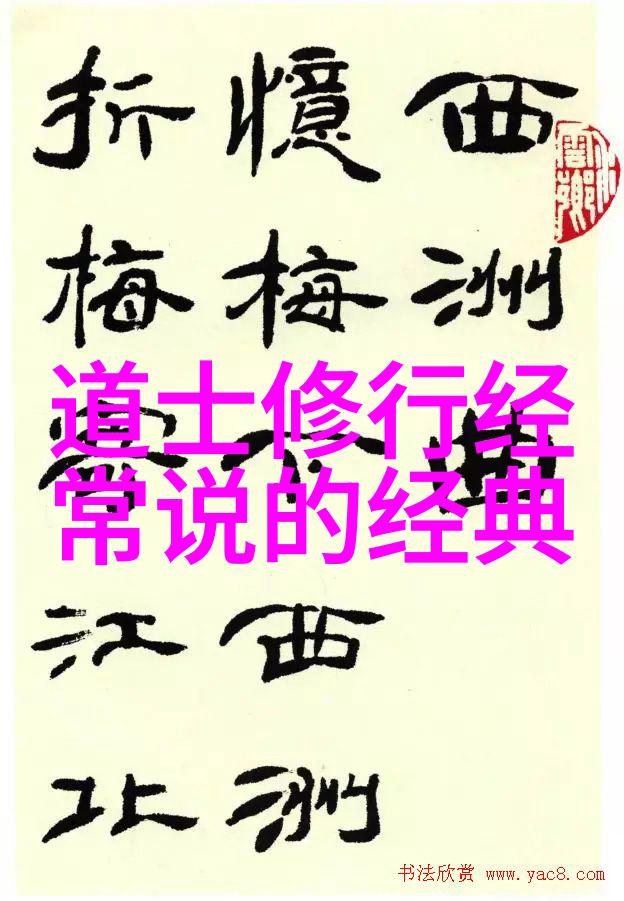 西洲曲
憶梅下西洲
折梅寄江北
道士修行经
常说的经典
书法欣赏 www.yac8.com